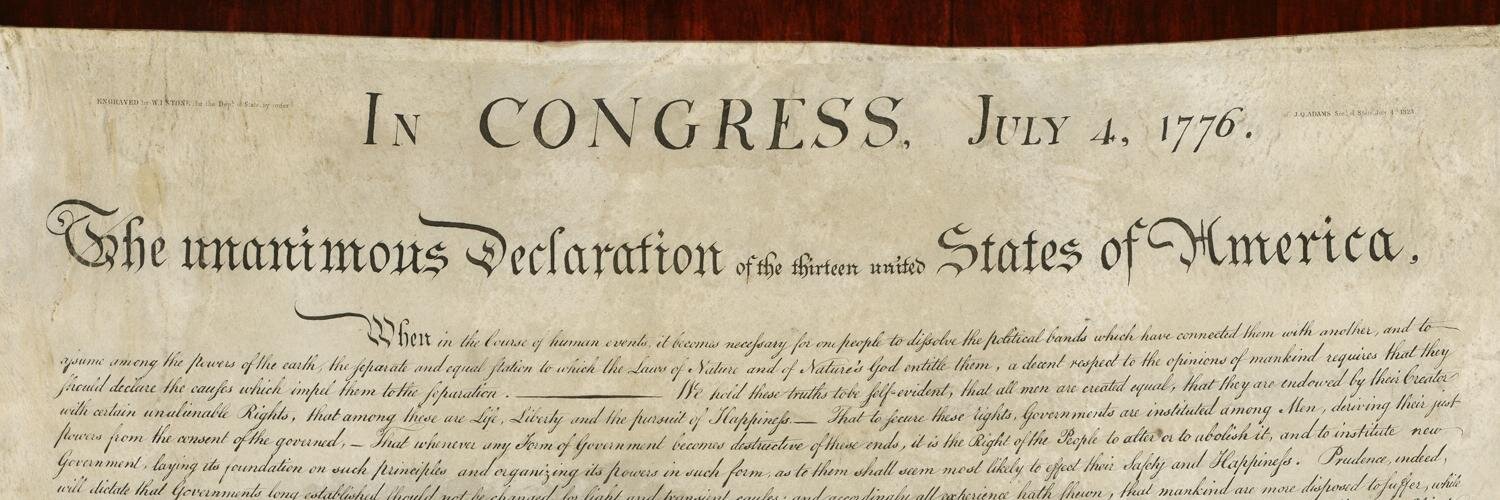 ENGRAVED by W.I STONE, for the Dept. of State, by order
IN CONGRESS, JULY 4, 1776.
J.Q. ADAMS Secy. of State, July 4th 1823.
The unanimous Declaration of the thirteen united States of America,
When in the Course of human events, it becomes necessary for one people to dissolve the political bands which have connected them with another, and to
assume among the powers of the earth, the separate and equal station to which the Laws of Nature and of Nature's God entitle them, a decent respect to the opinions of mankind requires that they
should declare the causes which impel them to the separation. — We hold these truths to be self-evident, that all men are created equal, that they are endowed by their Creator
with certain unalienable Rights, that among these are Life, Liberty and the pursuit of Happiness.— That to secure these rights, Governments are instituted among Men, deriving their just
powers from the consent of the governed,— That whenever any Form of Government becomes destructive of these ends, it is the Right of the People to alter or to abolish it, and to institute new
Government, laying its foundation on such principles and organizing its powers in such form, as to them shall seem most likely to effect their Safety and Happiness. Prudence, indeed,
will dictate that Governments long established should not be changed for light and transient causes; and accordingly all experience hath shewn, that mankind are more disposed to suffer, while